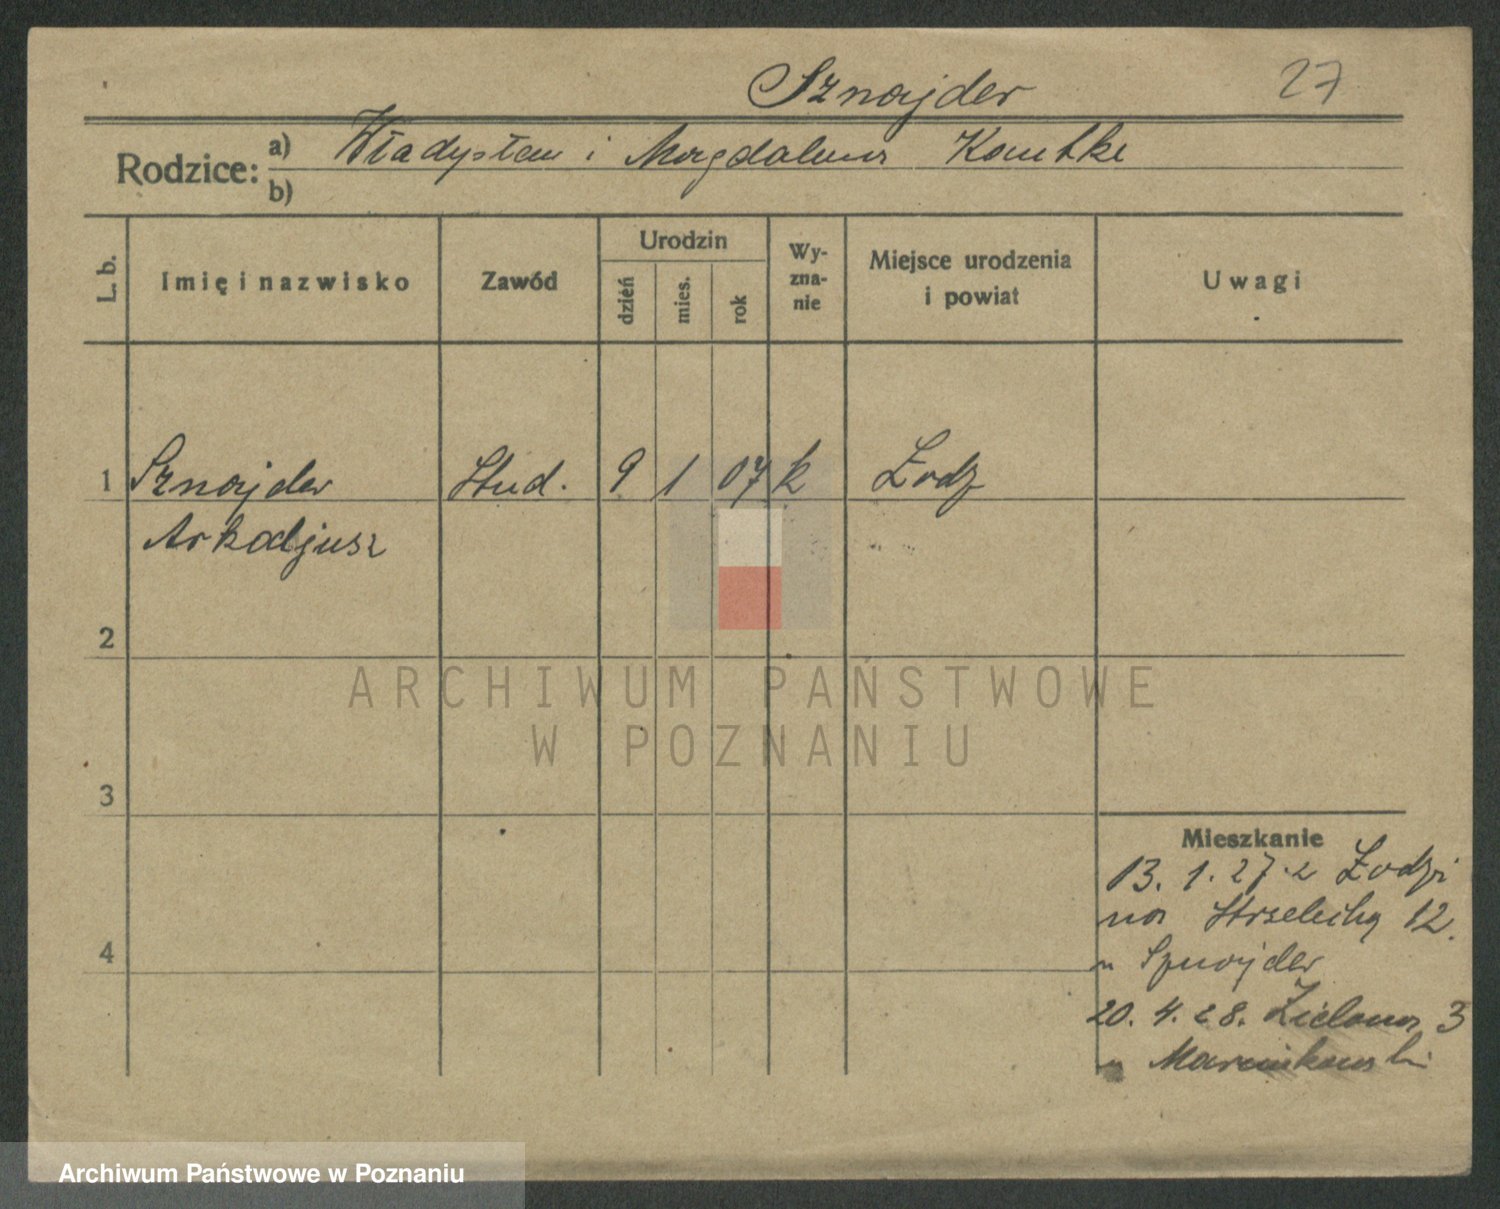 Sznajder 27
Rodzice: a) Władysław i Magdalena Kantke
b)
L. b. Imię i nazwisko Zawód Urodzin dzień mies. rok Wy-zna-nie Miejsce urodzenia i powiat Uwagi
1 Sznajder Stud. 9 1 07 k Łodz
Arkadjusz
2
ARCHIWUM PAŃSTWOWE
W POZNANIU
3
Mieszkanie
13. 1. 27 z Łodzi
na Strzelecką 12.
u Sznajder
4
20. 4. 28. Zielona 3
u Marcinkowski
Archiwum Państwowe w Poznaniu